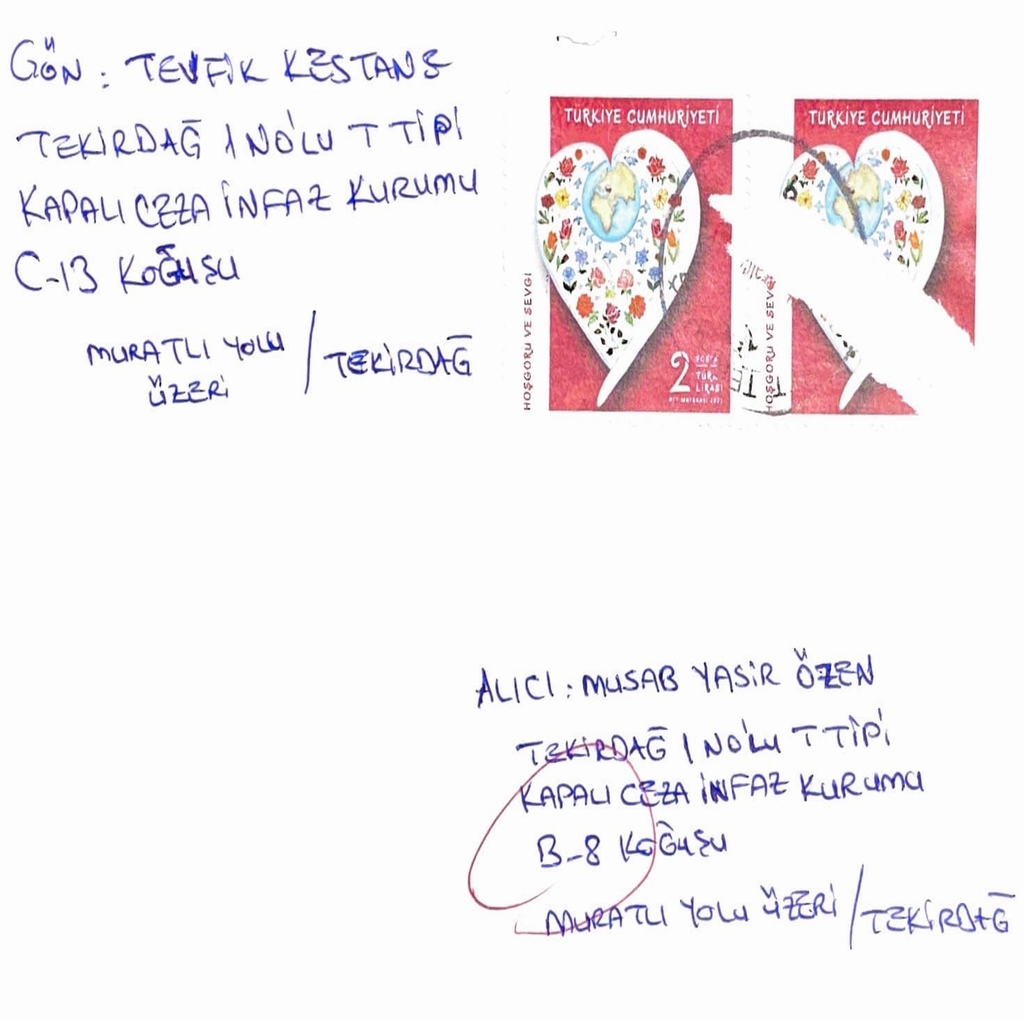 GÖN : TEVFİK KESTANE
TEKİRDAĞ 1 NO'LU T TİPİ
KAPALI CEZA İNFAZ KURUMU
C-13 KOĞUŞU
MURATLI YOLU
ÜZERİ
/ TEKİRDAĞ
TÜRKİYE CUMHURİYETİ
HOŞGÖRÜ VE SEVGİ
2
POSTA
TÜRK
LİRASI
TÜRKİYE CUMHURİYETİ
HOŞGÖRÜ VE SEV
ALICI : MUSAB YASİR ÖZEN
TEKİRDAĞ 1 NO'LU T TİPİ
KAPALI CEZA İNFAZ KURUMU
B-8 KOĞUŞU
MURATLI YOLU ÜZERİ / TEKİRDAĞ